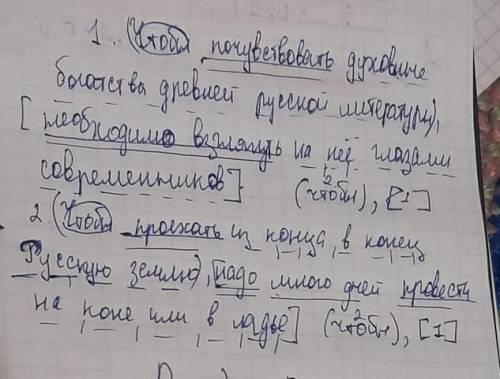 1. (Чтобы почувствовать духовные
богатства древней русской литературы),
[необходимо взглянуть на неё глазами
современников]. (чтобы)², [1]
2. (Чтобы проехать из конца в конец
Русскую землю), [надо много дней провести
на коне или в ладье] (чтобы)², [1]